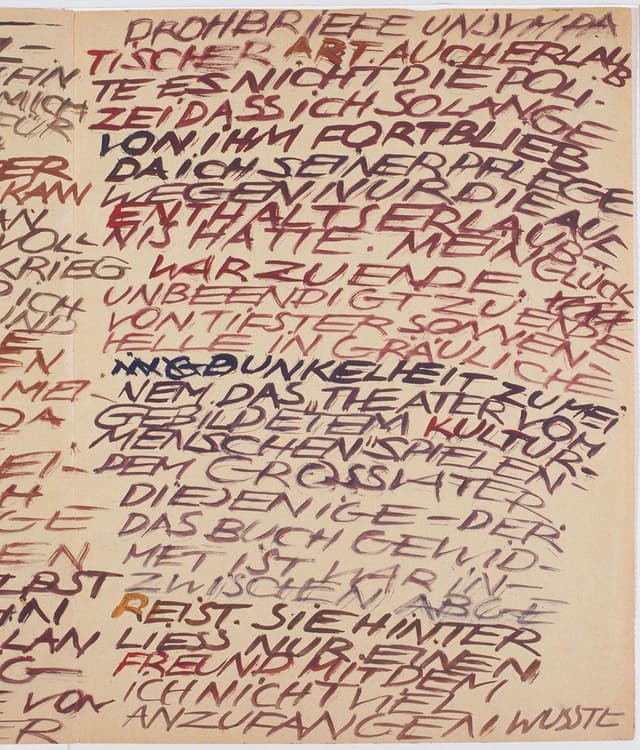 EIN
MICH
FÜR
DER
KANN
AN
VOLL
KRIEG
ICH
UND
E
EN
MEI-
DA
EI-
H
GE
EN
ELBST
HN
LAN
G
E VON
ER
DROHBRIEFE UNSYMPA
TISCHER ART. AUCH ERLAUB
TE ES NICHT DIE POLI-
ZEI DASS ICH SOLANGE
VON IHM FORTBLIEB
DA ICH SEINER PFLEGE
WEGEN NUR DIE AUF
ENTHALTSERLAUB
NIS HATTE. MEIN GLÜCK
WAR ZU ENDE. ICH
UNBEENDIGT ZU ENDE
VON TIFSTER SONNEN
HELLE IN GRÄULICHE
DUNKELHEIT ZU MEI
NEM DAS THEATER VOM
GEBILDETEM KULTUR-
MENSCHEN" SPIELEN-
DEM GROSSVATER
DIEJENIGE - DER
DAS BUCH GEWID-
MET IST WAR IN-
ZWISCHEN ABGE
REIST. SIE HINTER
LIESS NUR EINEN
FREUND MIT DEM
ICH NICHT VIEL
ANZUFANGEN WUSSTE